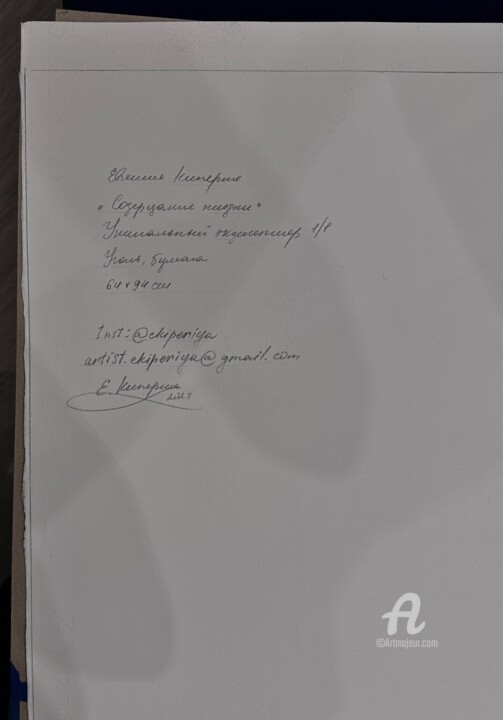 Евгения Киперия
"Созерцание жизни"
Уникальный экземпляр 1/1
Уголь, бумага
64 x 94 см
Inst: @ekiperiya
artist.ekiperiya@gmail.com
Е. Киперия
2023
A
©Artmajeur.com